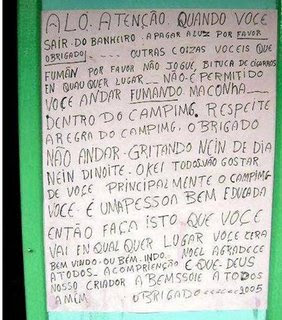 ALO. ATENÇÃO. QUANDO VOCE
SAÍR. DO BANHEIRO. APAGAR A LUZ POR FAVOR
OBRIGADO..... OUTRAS COIZAS VOCEIS QUE
FUMÁN POR FAVOR NÃO JOGUE, BITUCA DE CIGARROS
EN QUAU QUER LUGAR..... NÃO É PERMITIDO
VOCE ANDAR FUMANDO MACONHA.....
DENTRO DO CAMPIMG. RESPEITE
A REGRA DO CAMPIMG. OBRIGADO
NÃO ANDAR-GRITANDO NEIN DE DIA
NEIN DINOITE. OKEI TODOS.VÃO GOSTAR
DE VOCE PRINCIPALMENTE O CAMPIMG
VOCE. É UMA PESSOA BEM EDUCADA
ENTÃO FAÇA ISTO QUE VOCE
VAI EN QUAL QUER LUGAR VOCE CERA
BEM VINDO. OU BEM. INDO... NOEL AGRADECE
ATODOS. ACOMPRIENÇÃO E QUE. DEUS
NOSSO CRIADOR ABEMSSOIE ATODOS
AMÉM OBRIGADO........2005